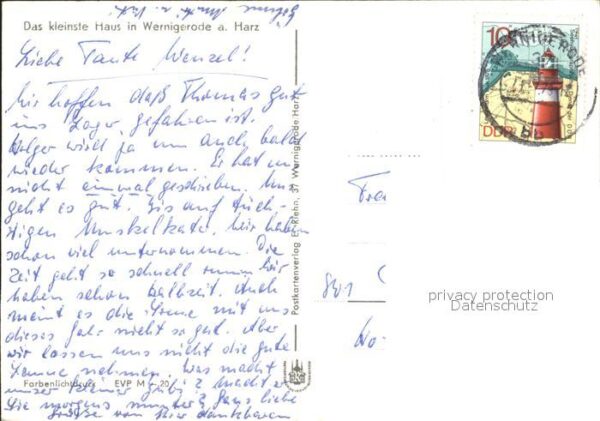 Das kleinste Haus in Wernigerode a. Harz
Liebe Tante Wenzel!
Wir hoffen daß Thomas gut
ins Lager gefahren ist.
Holger wird ja nun auch bald
wieder kommen. Er hat un
nicht einmal geschrieben. Uns
geht es gut. Bis auf tüch-
tigen Muskelkater. Wir haben
schon viel unternommen. Die
Zeit geht so schnell rum. Wir
haben schon Halbzeit. Auch
meint es die Sonne mit uns
dieses Jahr nicht so gut. Aber
wir lassen uns nicht die gute
Laune nehmen. Was macht
unser kleiner Hubi? Macht er
Sie morgens munter? Ganz liebe
Grüße von Ihrer dankbaren
Farbenlichtdruck EVP M -,20
Postkartenverlag E. Riehn, 37 Wernigerode Harz
10
DDR
WERNIGERODE
bb
Frau
8401
privacy protection
Datenschutz